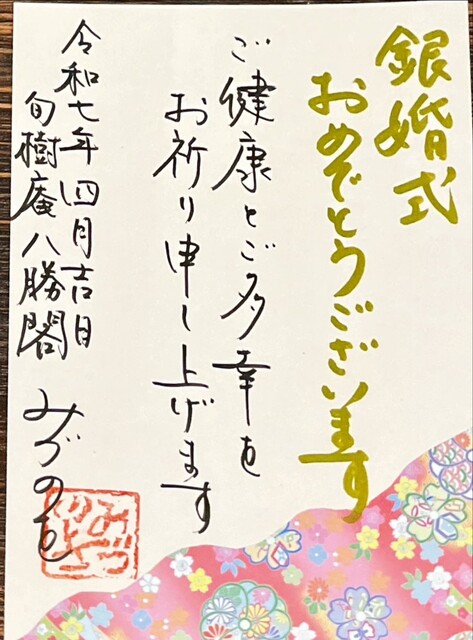 銀婚式
おめでとうございます
ご健康とご多幸を
お祈り申し上げます
令和七年四月吉日
旬樹庵八勝閣 みづのを